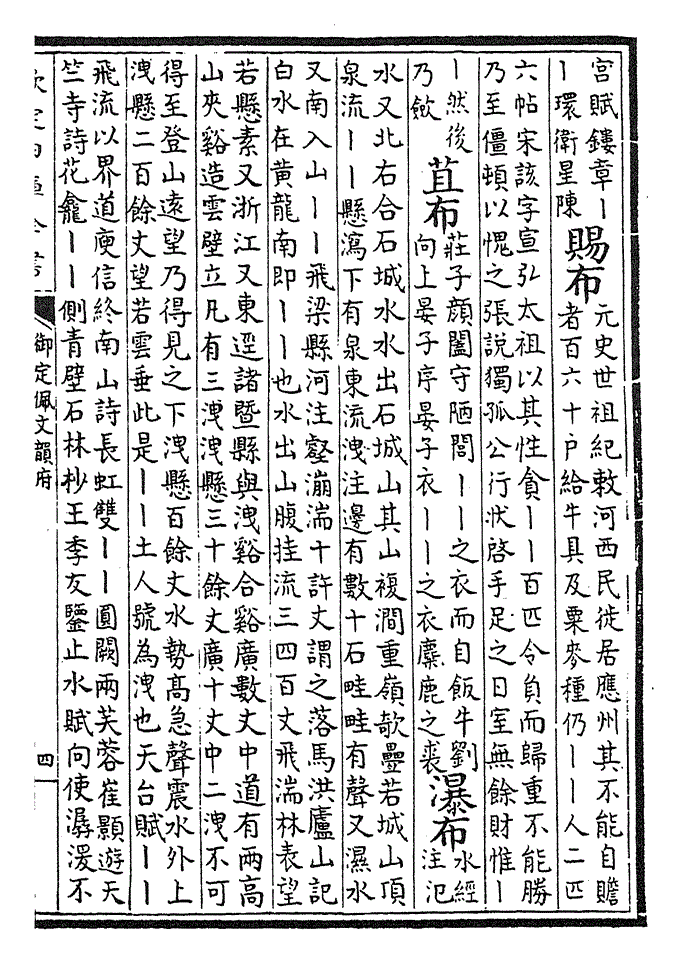 宮賦鏤章｜
｜環衛星陳
賜布
元史世祖紀敕河西民徙居應州其不能自贍
者百六十戶給牛具及粟麥種仍｜｜人二匹
六帖宋該字宣弘太祖以其性貪｜｜百匹令負而歸重不能勝
乃至僵頓以愧之張說獨孤公行狀啓手足之日室無餘財惟｜
｜然後
乃斂
苴布
莊子顔闔守陋閭｜｜之衣而自飯牛劉
向上晏子序晏子衣｜｜之衣麋鹿之裘
瀑布
水經
注汜
水又北右合石城水水出石城山其山複澗重嶺欹疊若城山頂
泉流｜｜懸瀉下有泉東流洩注邊有數十石畦畦有聲又濕水
又南入山｜｜飛梁縣河注壑漰湍十許丈謂之落馬洪廬山記
白水在黃龍南即｜｜也水出山腹挂流三四百丈飛湍林表望
若懸素又浙江又東逕諸暨縣與洩谿合谿廣數丈中道有兩高
山夾谿造雲壁立凡有三洩洩懸三十餘丈廣十丈中二洩不可
得至登山遠望乃得見之下洩懸百餘丈水勢高急聲震水外上
洩懸二百餘丈望若雲垂此是｜｜土人號為洩也天台賦｜｜
飛流以界道庾信終南山詩長虹雙｜｜圓闕兩芙蓉崔顥遊天
竺寺詩花龕｜｜側青壁石林杪王季友鑒止水賦向使潺湲不
欽定四庫全書
御定佩文韻府
四